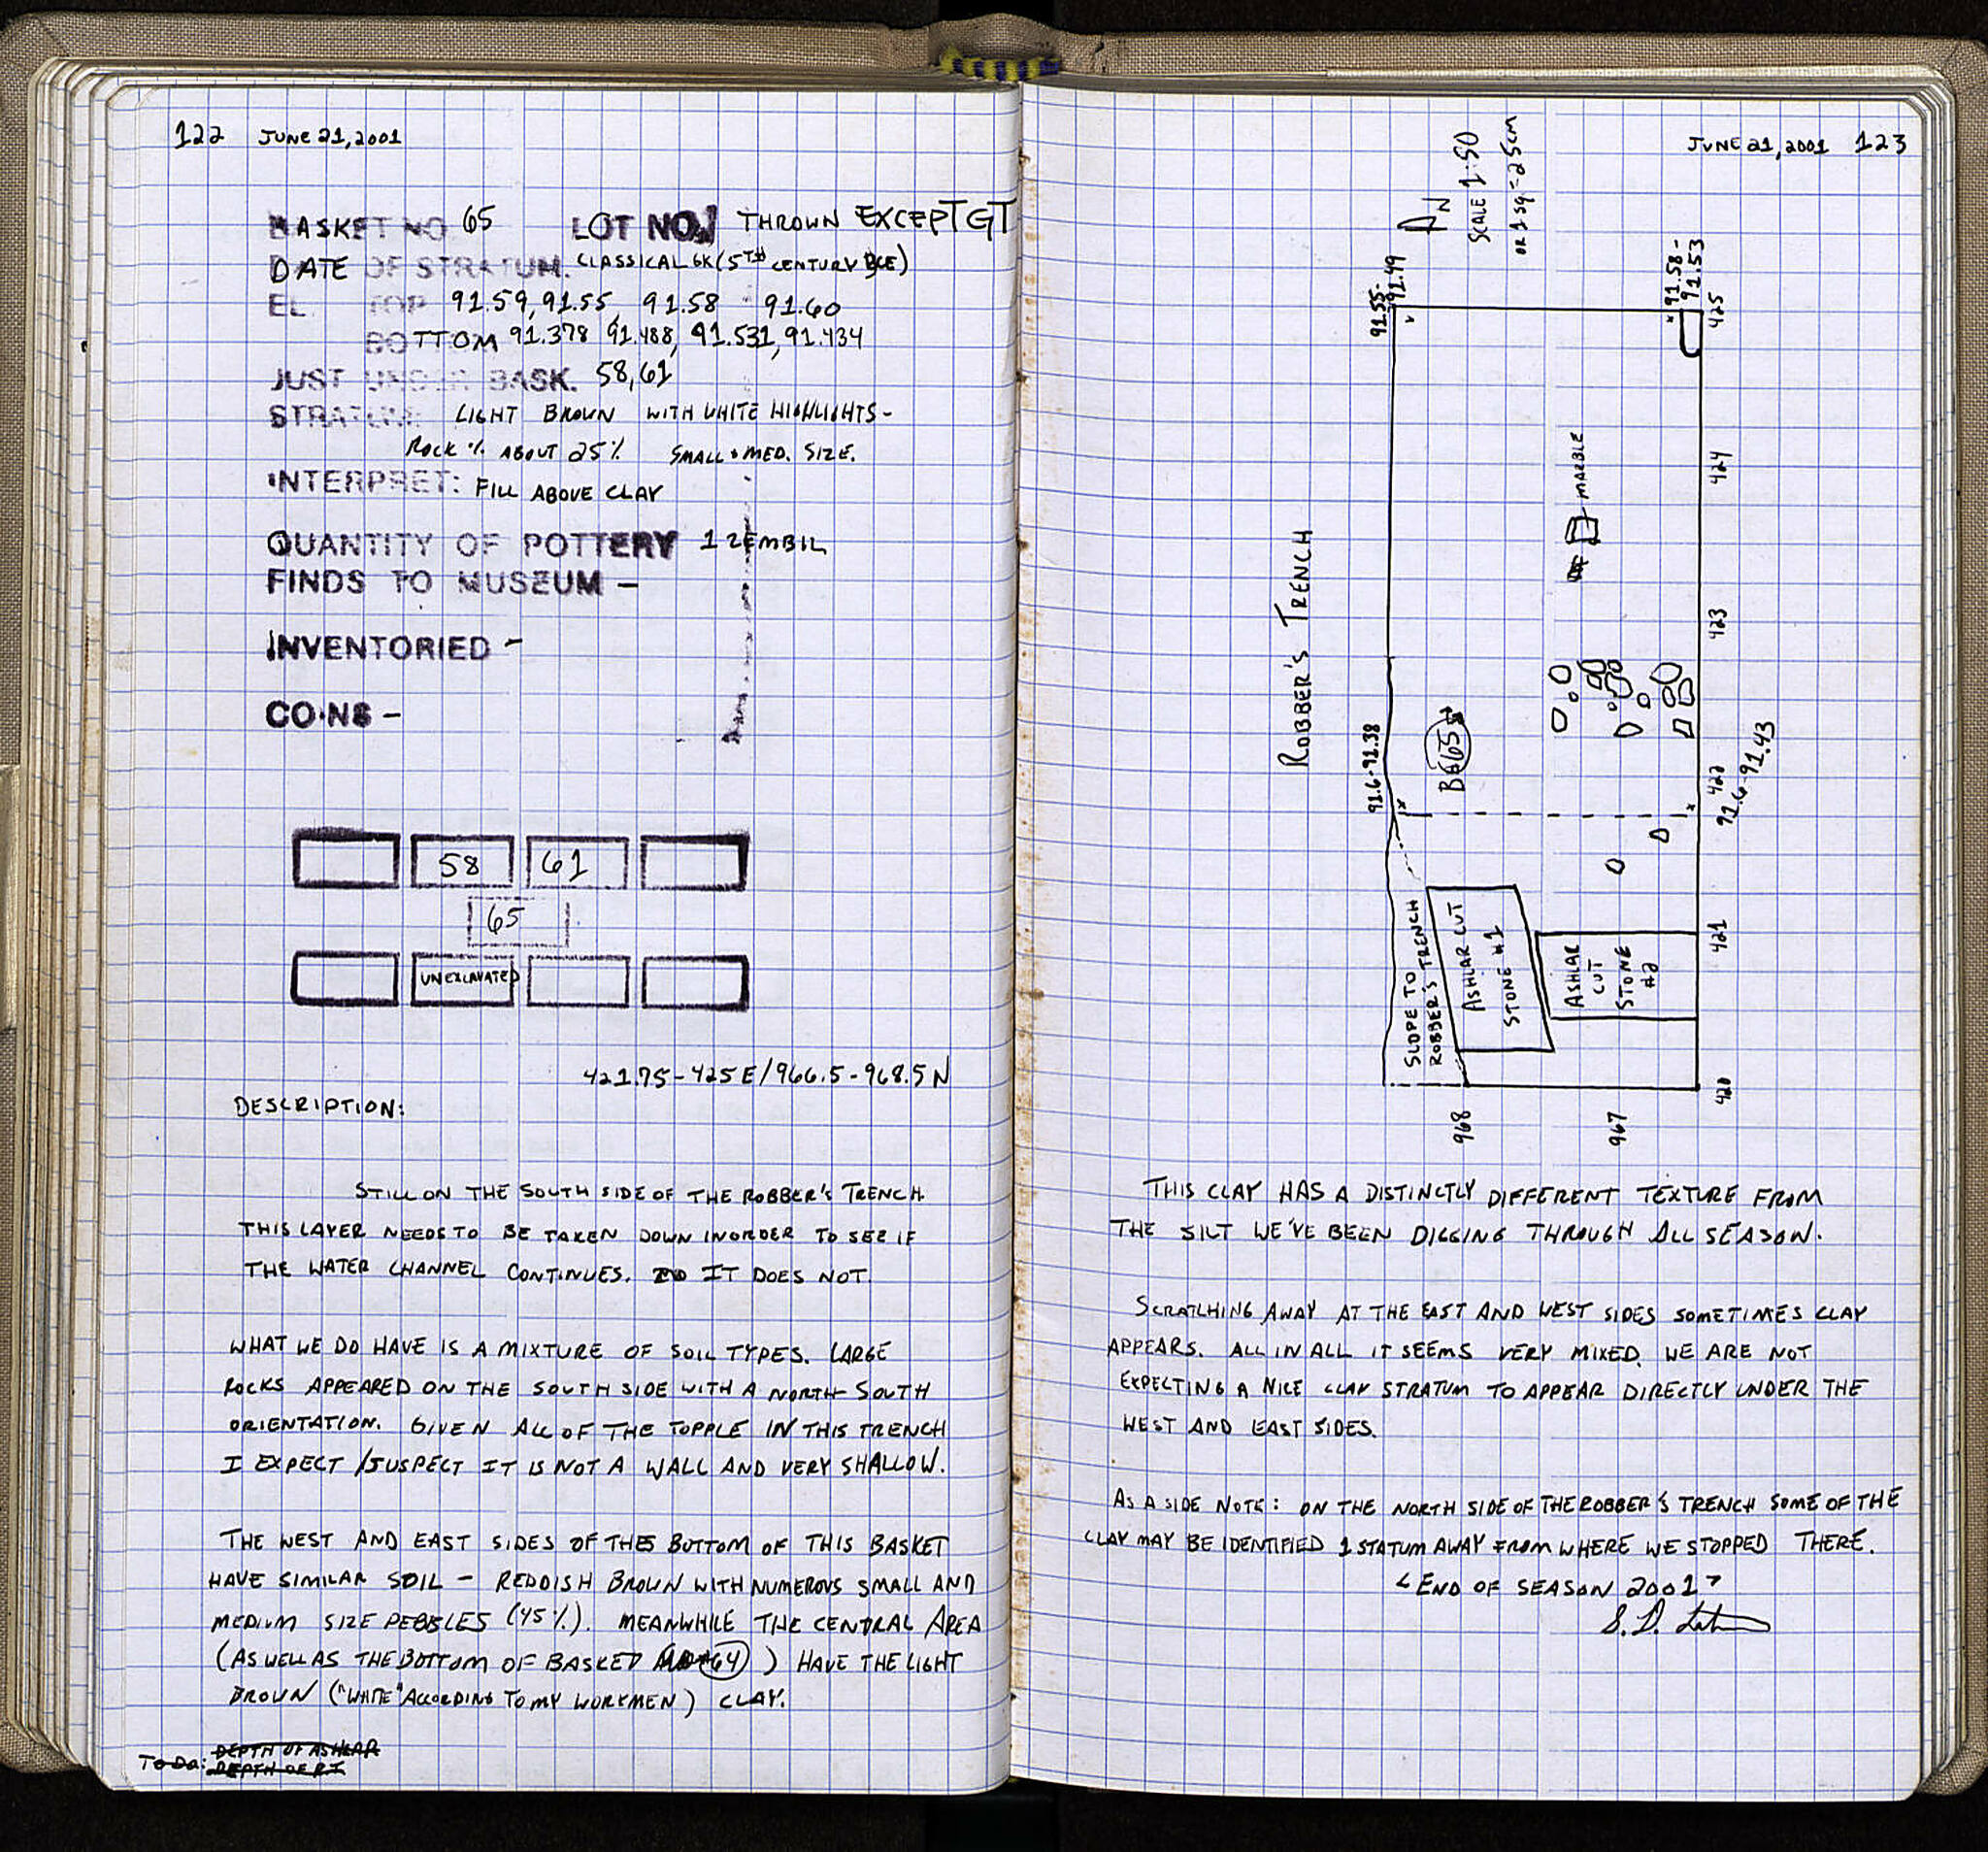 122 JUNE 21, 2001
BASKET NO 65 LOT NO. THROWN EXCEPT GT
DATE OF STRATUM. CLASSICAL GK (5TH CENTURY BCE)
EL. TOP 91.59, 91.55, 91.58 91.60
BOTTOM 91.378 91.488, 91.531, 91.434
JUST UNDER BASK. 58, 61
STRATUM: LIGHT BROWN WITH WHITE HIGHLIGHTS -
ROCK % ABOUT 25% SMALL + MED. SIZE.
INTERPRET: FILL ABOVE CLAY
QUANTITY OF POTTERY 1 ZEMBIL
FINDS TO MUSEUM -
INVENTORIED -
COINS -
58 61
65
UNEXCAVATED
421.75 - 425 E / 966.5 - 968.5 N
DESCRIPTION:
STILL ON THE SOUTH SIDE OF THE ROBBER'S TRENCH
THIS LAYER NEEDS TO BE TAKEN DOWN INORDER TO SEE IF
THE WATER CHANNEL CONTINUES. IT DOES NOT.
WHAT WE DO HAVE IS A MIXTURE OF SOIL TYPES. LARGE
ROCKS APPEARED ON THE SOUTH SIDE WITH A NORTH-SOUTH
ORIENTATION. GIVEN ALL OF THE TOPPLE IN THIS TRENCH
I EXPECT/SUSPECT IT IS NOT A WALL AND VERY SHALLOW.
THE WEST AND EAST SIDES OF THE BOTTOM OF THIS BASKET
HAVE SIMILAR SOIL - REDDISH BROWN WITH NUMEROUS SMALL AND
MEDIUM SIZE PEBBLES (45%). MEANWHILE THE CENTRAL AREA
(AS WELL AS THE BOTTOM OF BASKED 64) HAVE THE LIGHT
BROWN ("WHITE" ACCORDING TO MY WORKMEN) CLAY.
TO DO: DEPTH OF ASHLAR
DEPTH OF RT
JUNE 21, 2001 123
N
SCALE 1:50
OR 1 SQ = 25CM
91.55-
91.49
91.58-
91.53
425
424
MARBLE
ROBBER'S TRENCH
423
B65
91.6-91.38
422
91.6-91.43
SLOPE TO
ROBBER'S TRENCH
ASHLAR CUT
STONE #1
ASHLAR
CUT
STONE
#2
421
420
968
967
THIS CLAY HAS A DISTINCTLY DIFFERENT TEXTURE FROM
THE SILT WE'VE BEEN DIGGING THROUGH ALL SEASON.
SCRATCHING AWAY AT THE EAST AND WEST SIDES SOMETIMES CLAY
APPEARS. ALL IN ALL IT SEEMS VERY MIXED. WE ARE NOT
EXPECTING A NICE CLAY STRATUM TO APPEAR DIRECTLY UNDER THE
WEST AND EAST SIDES.
AS A SIDE NOTE: ON THE NORTH SIDE OF THE ROBBER'S TRENCH SOME OF THE
CLAY MAY BE IDENTIFIED 1 STATUM AWAY FROM WHERE WE STOPPED THERE.
< END OF SEASON 2001 >
S. D.